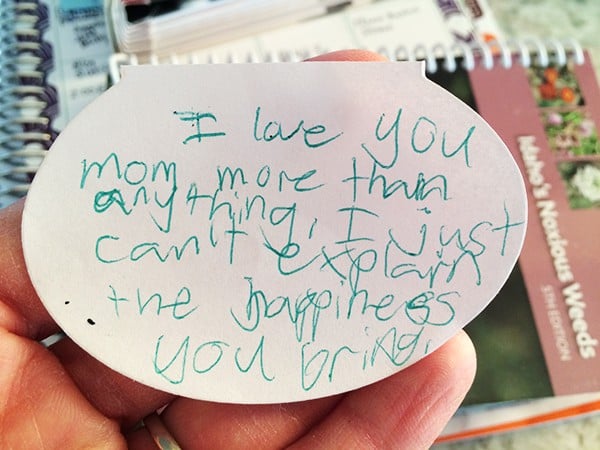 I love you
mom more than
anything, I just
can't explain
the happiness
you bring.
Idaho's Noxious Weeds
5TH EDITION